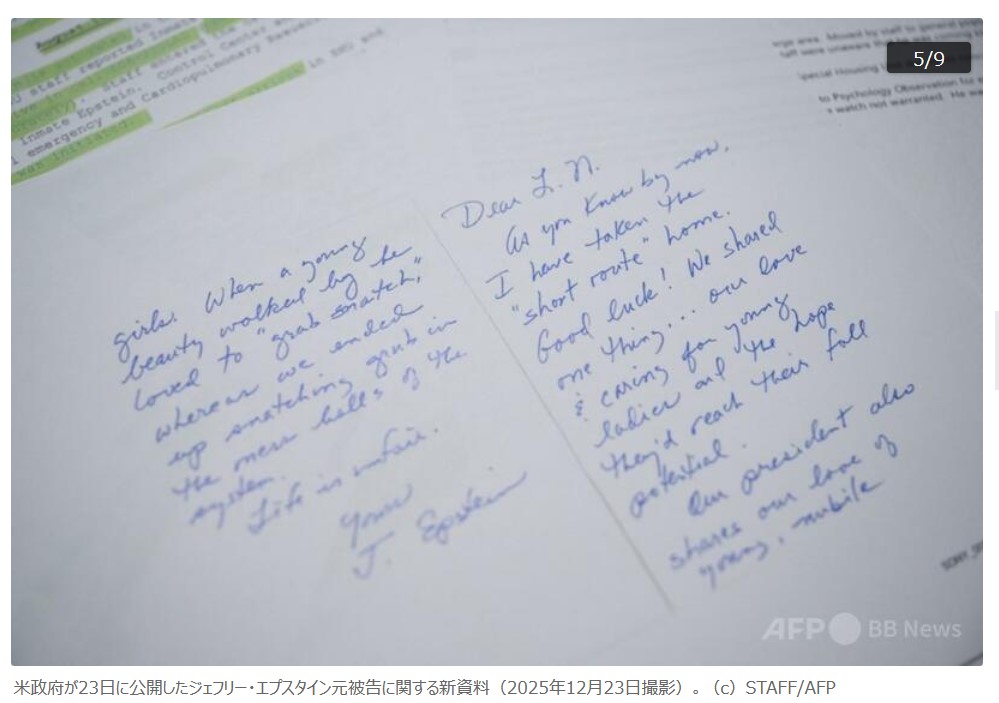 5/9
August
U staff reported Inmate
staff entered the
Control Center
Inmate Epstein.
emergency and Cardiopulmonary
in SHU and
was initiated
area. Moved by staff to general
staff were unaware that he was
Special Housing
to Psychology Observation for
watch not warranted. He
girls. When a young
beauty walked by he
loved to "grab snatch,"
whereas we ended
up snatching grub in
the mess halls of the
system.
Life is unfair.
Yours
J. Epstein
Dear L. N.
As you know by now,
I have taken the
"short route" home.
Good luck! We shared
one thing... our love
& caring for young
ladies and the hope
they'd reach their full
potential.
Our president also
shares our love of
young, nubile
AFP BB News
米政府が23日に公開したジェフリー・エプスタイン元被告に関する新資料（2025年12月23日撮影）。（c）STAFF/AFP